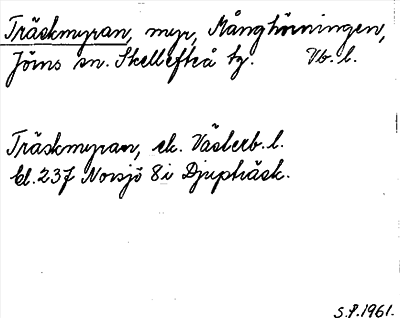 Träskmyran, myr, Månghörningen,
Jörns sn. Skellefteå tg. Vb. l.
Träskmyran, ek. Västerb. l.
bl. 237 Norsjö 8i Djupträsk.
S.P. 1961.